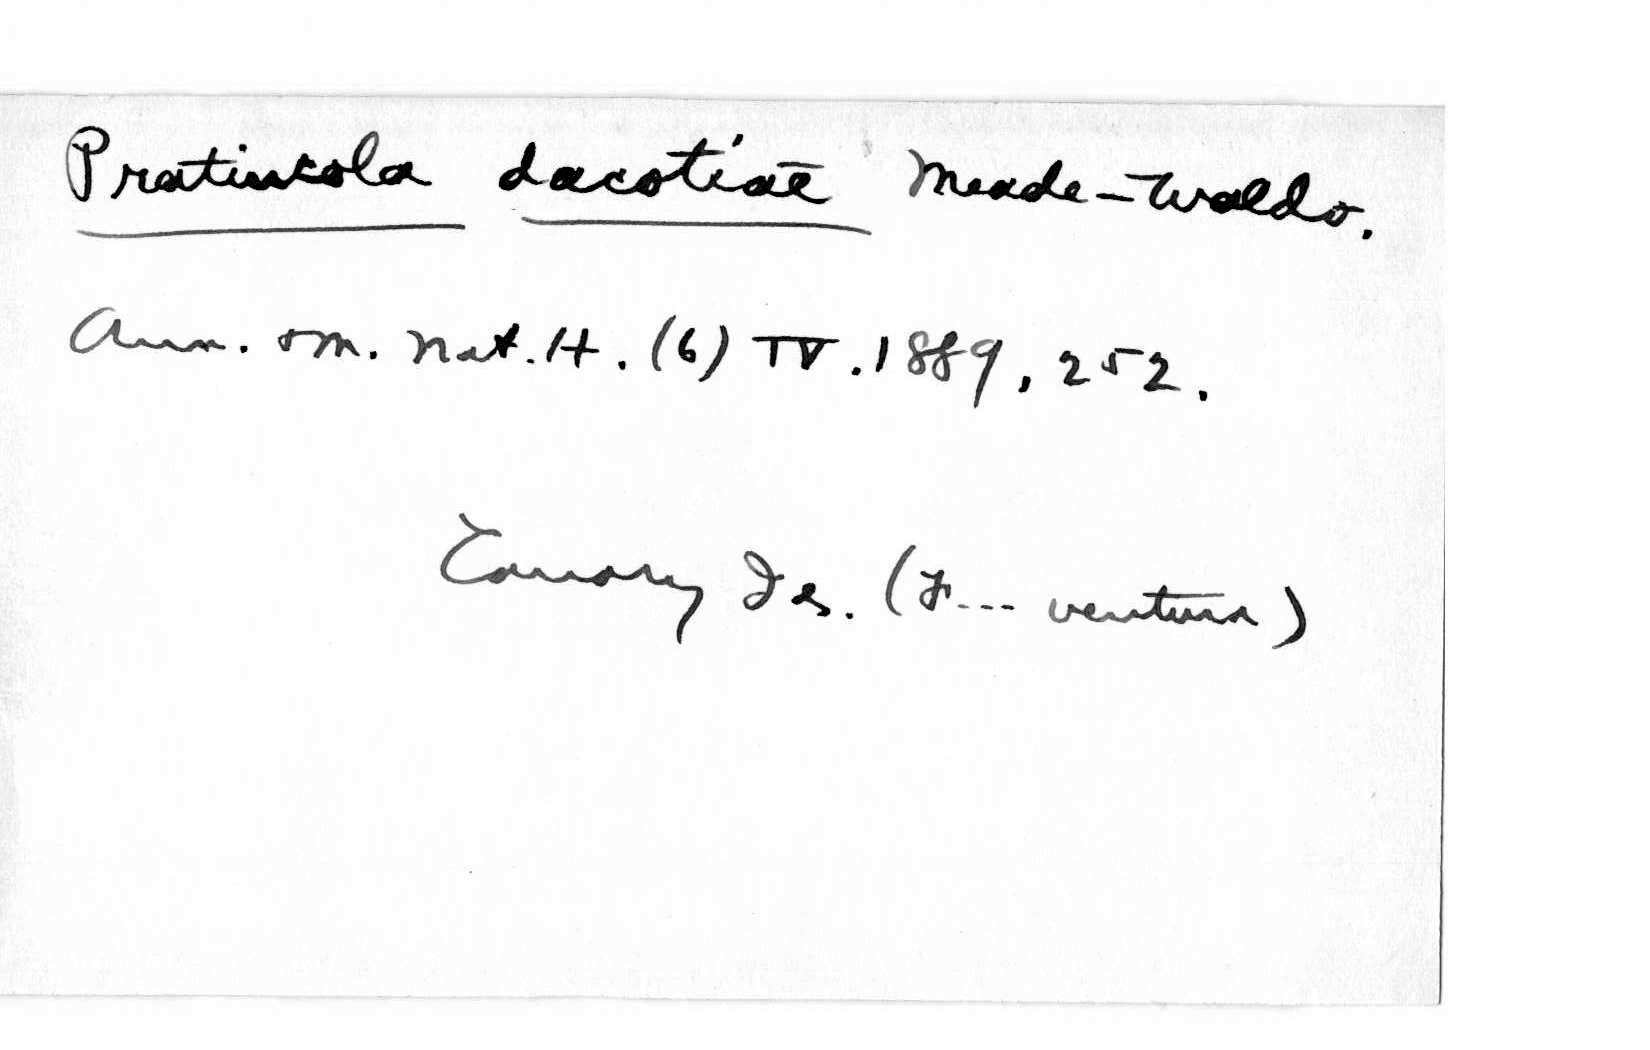 Pratincola dacotiae Meade-Waldo.
Ann. & M. Nat. H. (6) IV. 1889, 252.
Canary Is. (F--- ventura)